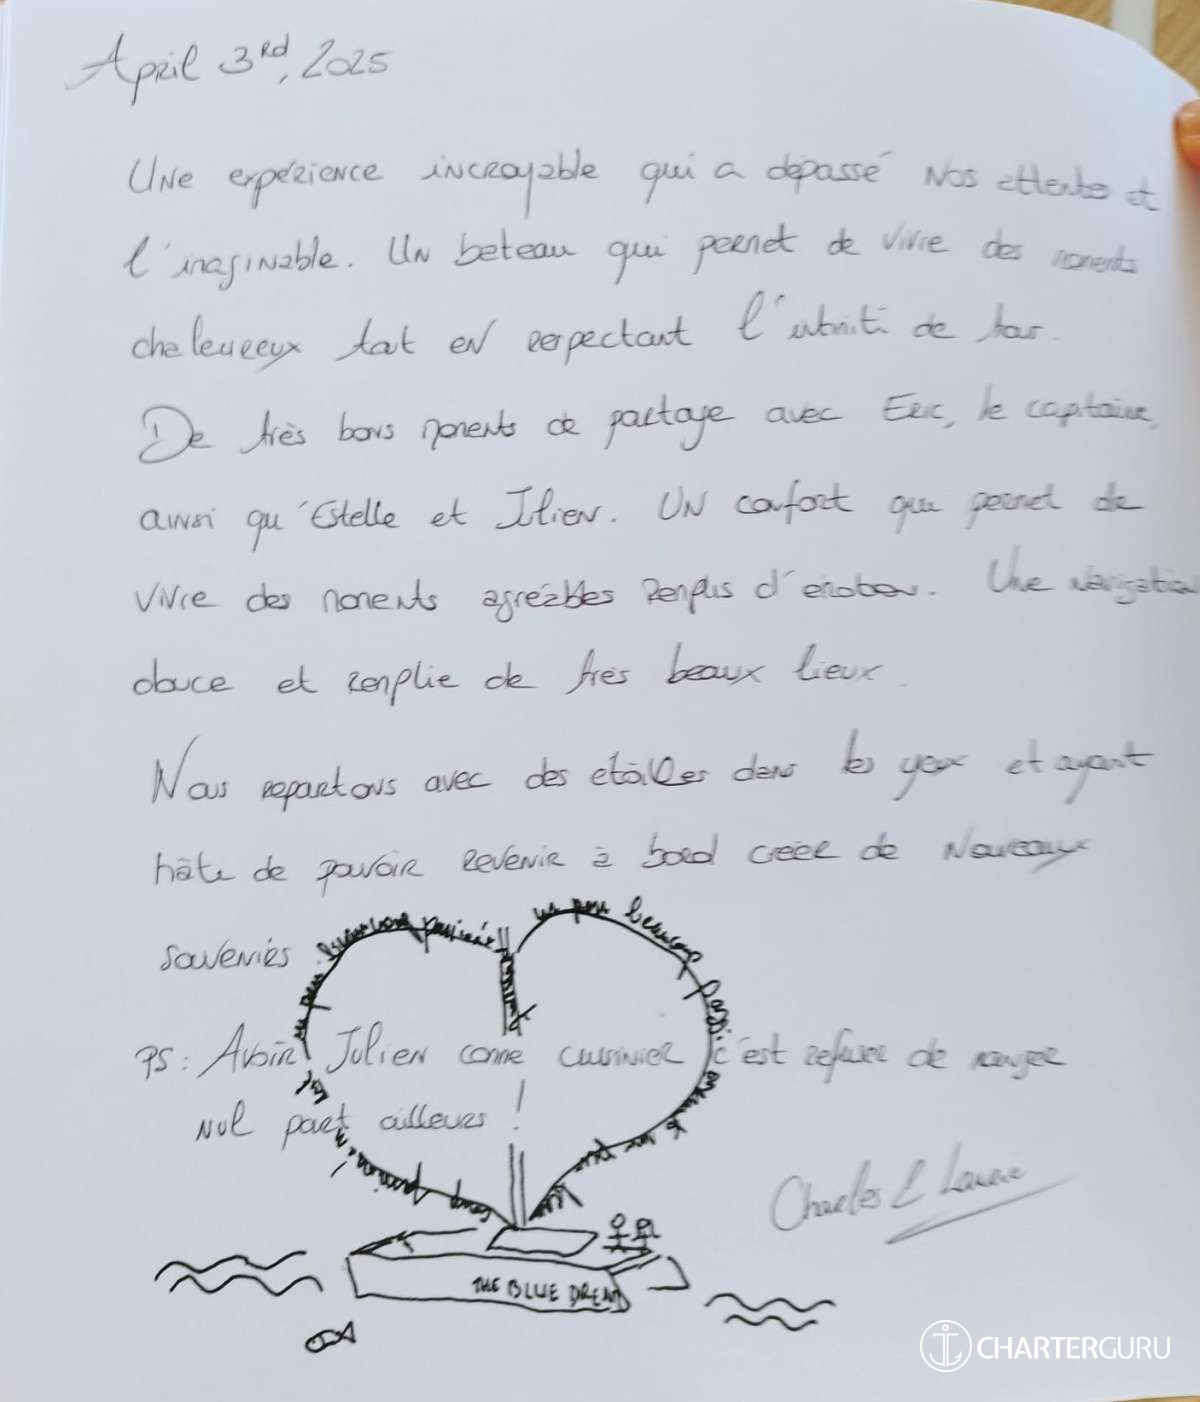 April 3rd, 2025
Une expérience incroyable qui a dépassé nos attentes et
l'imaginable. Un bateau qui permet de vivre des moments
chaleureux tout en respectant l'intimité de tous.
De très bons moments de partage avec Eric, le capitaine,
ainsi qu'Estelle et Julien. Un confort qui permet de
vivre des moments agréables remplis d'émotion. Une navigation
douce et remplie de très beaux lieux.
Nous repartons avec des étoiles dans les yeux et ayant
hâte de pouvoir revenir à bord créer de nouveaux
souveniés
un peu beaucoup
PS: Avoir Julien comme cuisinier c'est refuser de manger
nul part ailleurs !
Charles & Laurie
THE BLUE DREAM
CHARTERGURU